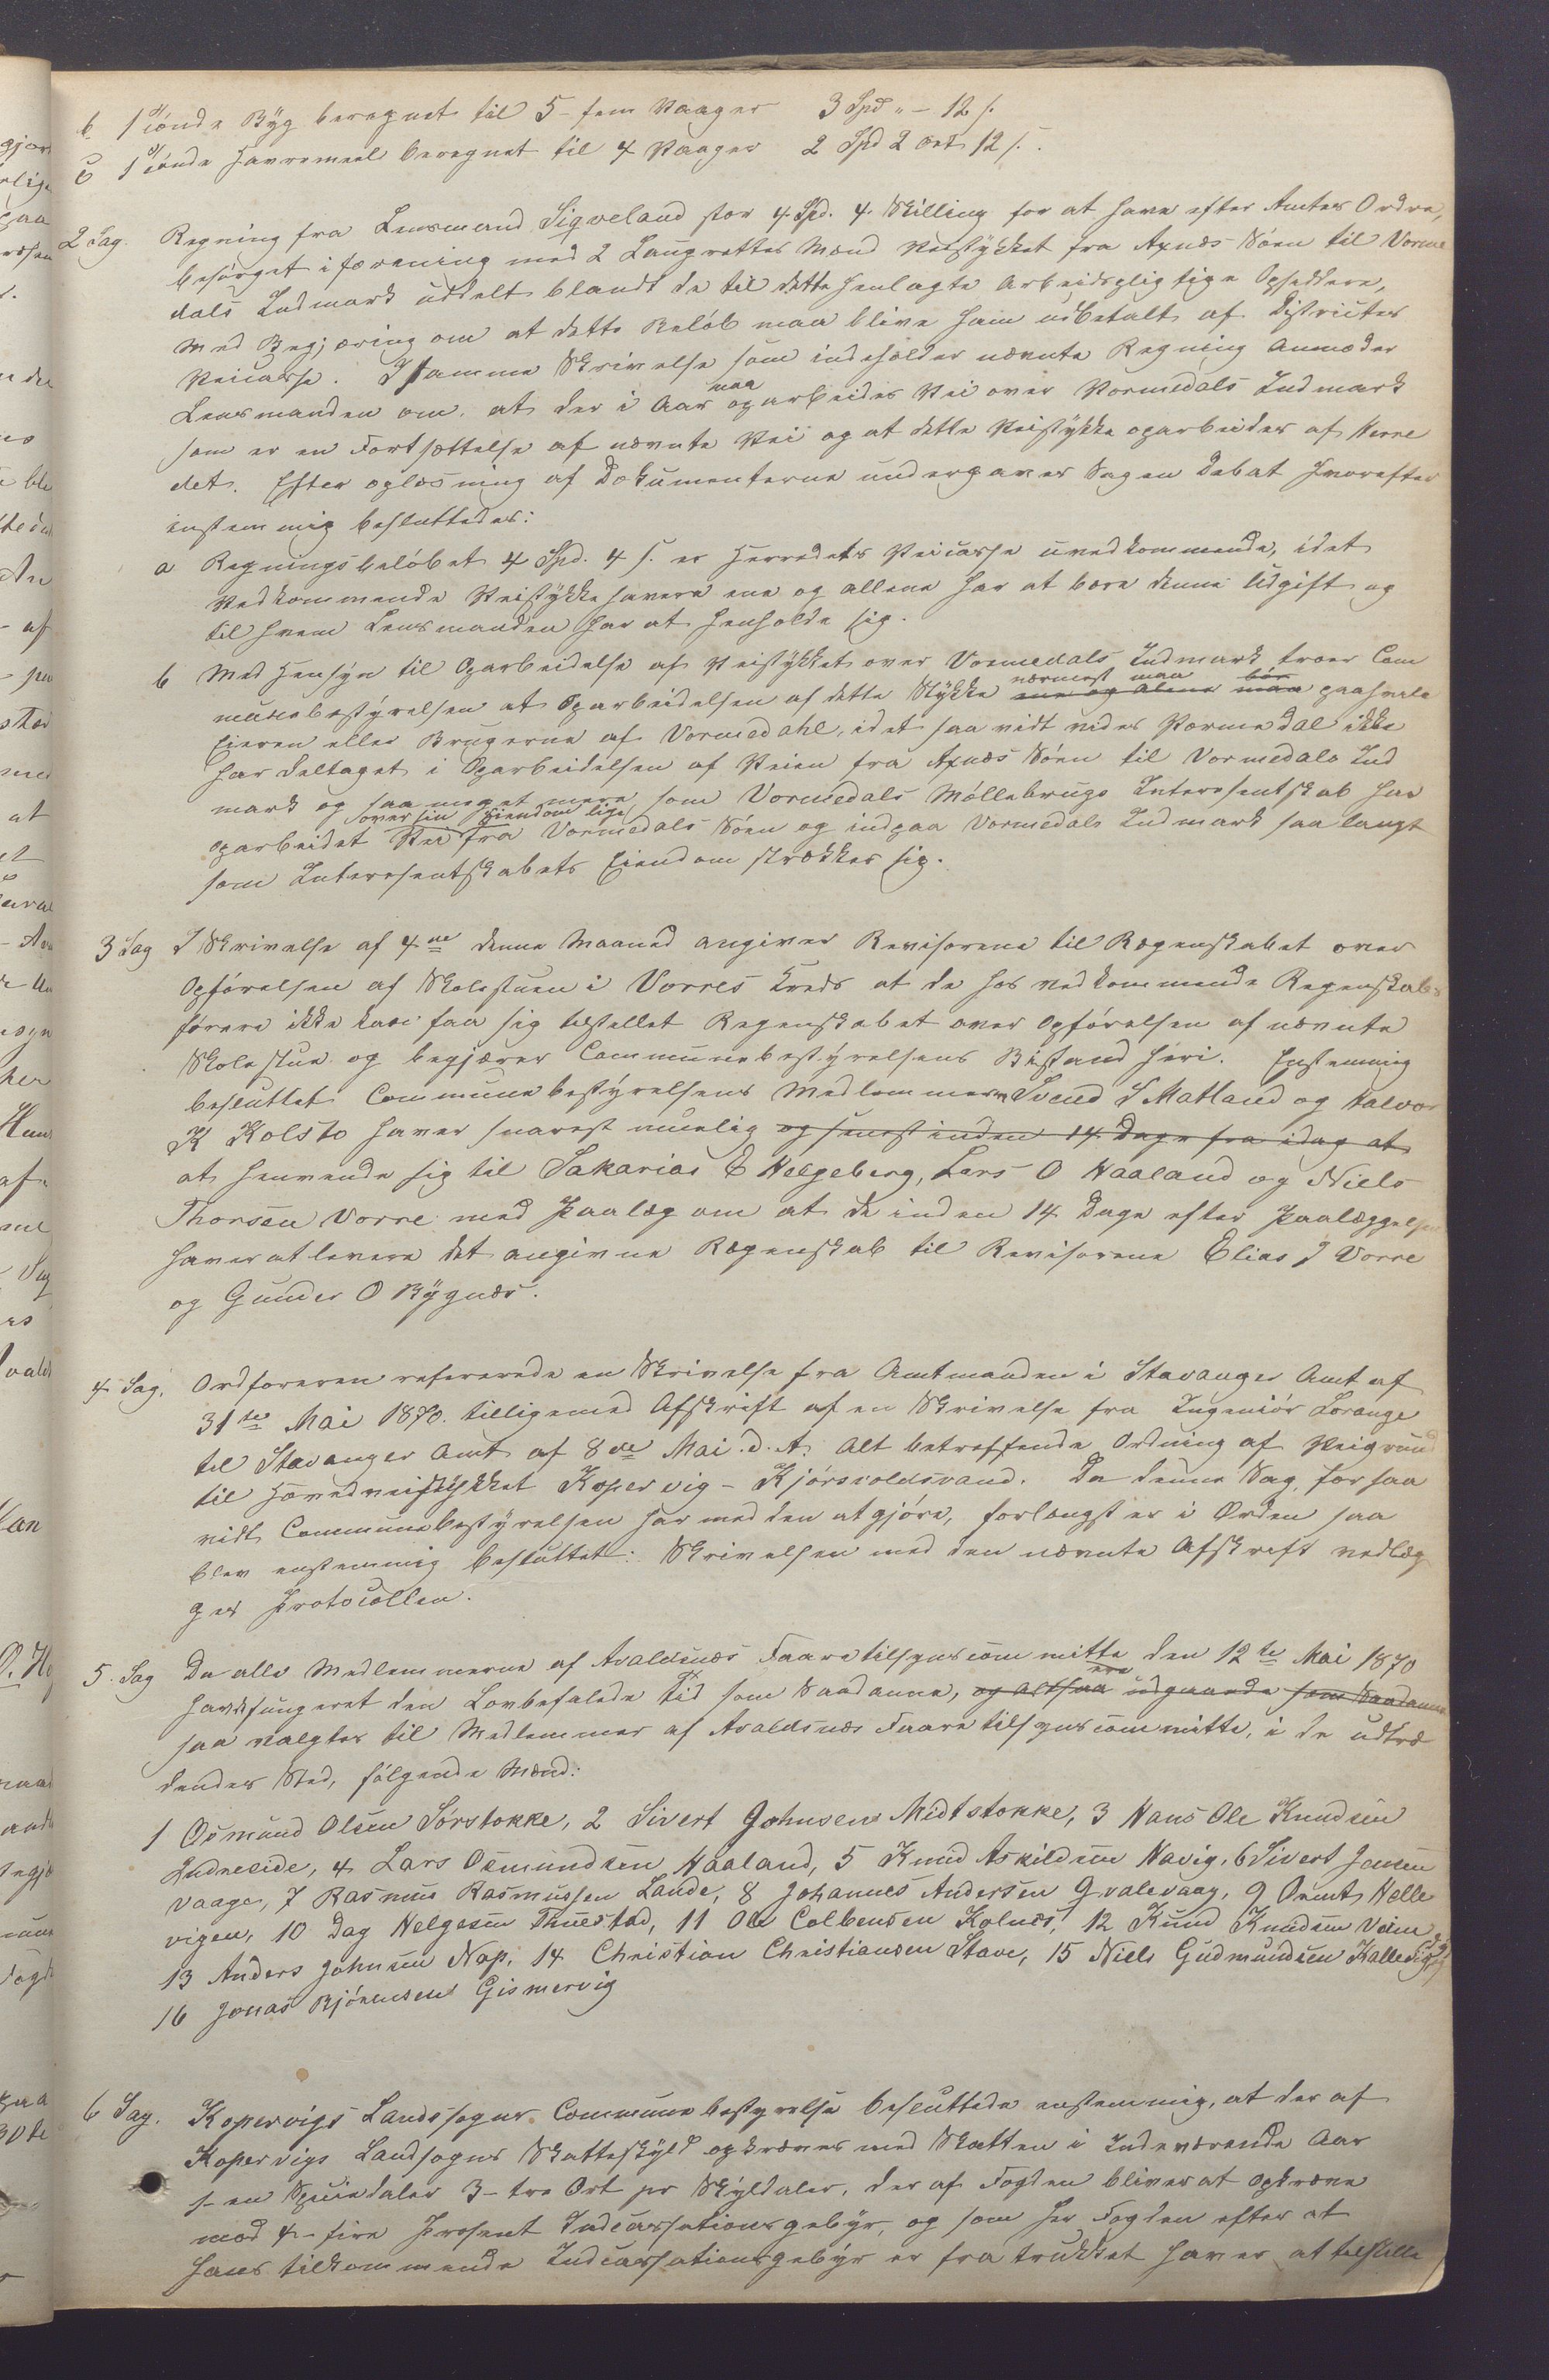 b 1 Tönde Byg beregnet til 5 - fem Vaager 3 Spd „ - 12 s.
c 1 Tönde Havremeel beregnet til 4 Vaager 2 Spd 2 ort 12 s.
2 Sag. Regning fra Lensmand Sigveland stor 4 Spd. 4 Skilling for at have efter Amtes Ordre,
besörget i forening med 2 Laugrettes Mænd Veistykket fra Axnæs Söen til Vorme
dals Indmark uddelt blandt de til dette henlagte Arbeidspligtige Opsiddere,
med Begjæring om at dette Belöb maa blive ham udbetalt af Districtes
Veicasse. I samme Skrivelse som indeholder nævnte Regning Anmoder
Lensmanden om, at der i Aar maa oparbeides Vei over Vormedals Indmark
som er en Fortsættelse af nævnte Vei og at dette Veistykke oparbeides af Herre
det. Efter oplæsning af Dokumenterne undergaves Sagen Debat hvorefter
enstemmig besluttedes:
a Regningsbelöbet 4 Spd. 4 s. er Herredets Veicasse uvedkommende, idet
Vedkommende Veistykkehavere ene og allene har at bære denne Udgift og
til hvem Lensmanden har at henholde sig.
b Med Hensyn til Oparbeidelse af Veistykket over Vormedals Indmark troer Com
munebestyrelsen at Oparbeidelsen af dette Stykke ene og alene nærmest maa maa bör paahvile
Eieren eller Brugerne af Vormedahl, idet saa vidt vides Vormedal ikke
har deltaget i Oparbeidelsen af Veien fra Axnæs Söen til Vormedals Ind
mark og saa meget mere som Vormedals Möllebrugs Interesentskab har
oparbeidet Vei over sin Eiendom lige fra Vormedals Söen og indpaa Vormedals Indmark saa langt
som Interesentskabets Eiendom strækker sig.
3 Sag I Skrivelse af 4de denne Maaned angiver Revisorene til Regenskabet over
Opförelsen af Skolestuen i Vorres Kreds at de hos vedkommende Regenskabs
förere ikke kan faa sig tilstellet Regenskabet over Opförelsen af nævnte
Skolestue og begjærer Communebestyrelsens Bistand heri. Enstemmig
besluttet Communebestyrelsens Medlemmer Svend S Matland og Halvor
K Kolstö haver snarest muelig og senest inden 14 Dage fra idag at
at henvende sig til Sakarias E Helgeberg, Lars O Haaland og Niels
Thorsen Vorre med Paalæg om at de inden 14 Dage efter Paalæggelsen
haver at levere det angivne Regenskab til Revisorene Elias J Vorre
og Gunder O Bygnæs.
4 Sag. Ordföreren refererede en Skrivelse fra Amtmanden i Stavanger Amt af
31te Mai 1870 tilligemed Afskrift af en Skrivelse fra Ingeniör Lorange
til Stavanger Amt af 8de Mai d. A. Alt betreffende Ordning af Veigrund
til Hovedveistykket Kopervig - Kjörsvoldsvand. Da denne Sag, forsaa
vidt Communebestyrelsen har med den at gjöre, forlængst er i Orden saa
blev enstemmig besluttet: Skrivelsen med den nævnte Afskrift vedlæg
ges Protocollen.
5. Sag Da alle Medlemmerne af Avaldsnæs Faaretilsynscommitte den 12te Mai 1870
have fungeret den Lovbefalede Tid som Saadanne, og altsaa ere udgaaende som Saadanne
saa valgtes til Medlemmer af Avaldsnæs Faaretilsynscommitte, i de udtræ
dendes Sted, fölgende Mænd:
1 Osmund Olsen Sörstokke, 2 Sivert Johnsen Midtstokke, 3 Hans Ole Knudsen
Indreeide, 4 Lars Osmundsen Haaland, 5 Knud Askildsen Havig, 6 Sivert Jensen
Vaage, 7 Rasmus Rasmussen Lande, 8 Johannes Andersen Gvalevaag, 9 Ormt Helle
vigen, 10 Dag Helgesen Thuestad, 11 Ole Colbensen Kolnes, 12 Knud Knudsen Veim
13 Anders Johnsen Nap, 14 Christian Christiansen Stave, 15 Niels Gudmundsen Kallevig og
16 Jonas Björnsen Gismervig
6 Sag. Kopervigs Landssogns Communebestyrelse besluttede enstemmig, at der af
Kopervigs Landsogns Skatteskyld opkræves med Skatten i Indeværende Aar
1 - en Speciedaler 3 - tre Ort pr Skyldaler, der af Fogden bliver at opkræve
mod 4 - fire Prosent Indcassationsgebyr, og som Hr Fogden efter at
hans tilkommende Indcassationsgebyr er fratrukket haver at tilstille